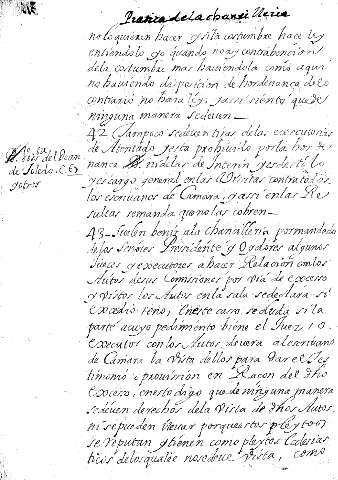 Pratica de la chancilleria
no lo quieran hacer y si la costumbre hace ley
entiendolo yo quando no ay contrabencion
de la costumbre mas haciendola como aqui
no haciendo disposicion de hordenança de lo
contrario no hara ley, y assi siento que de
ninguna manera se deven
42 Tampoco se deven tijas de las executorias
de Atentado y esta prohivido por la hor de
nanca ni de las de Interin y es de
y es cargo general en las Visitas contra todos
los escrivanos de Camara, y assi en las Re
sultas se manda que no las cobren
43 Suelen benir a la Chancilleria por mandado
de los señores Presidente y Oydores algunos
Jueces y executores a hacer Relacion con los
Autos de sus Comisiones por via de excesso
y vistos los Autos en la sala se declara si
excedio o no, en este caso se duda si la
parte a cuyo pedimento biene el Juez o
executor con los Autos, devera al escrivano
de Camara la vista dellos para dar el Tes
timonio o provission en Raçon del dho
excesso, en esto digo que de ninguna manera
se deven derechos de la Vista de dhos Autos
ni se pueden llevar porque estos pleytos
se reputan y tienen como pleytos Eclesias
ticos de los quales no se deve vista, como
del Dean
de Toledo. C. 67
y otros